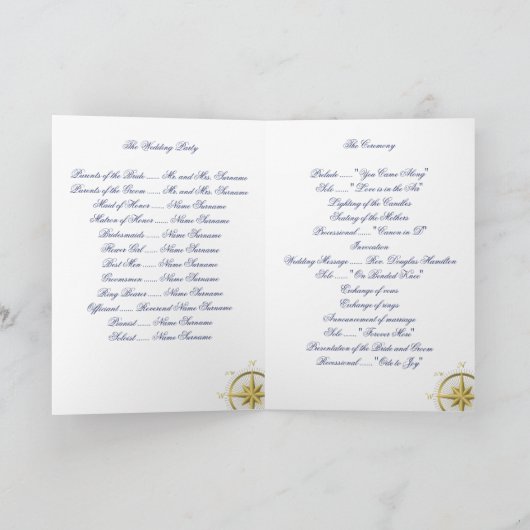 The Wedding Party
Parents of the Bride ...... Mr. and Mrs. Surname
Parents of the Groom ...... Mr. and Mrs. Surname
Maid of Honor ...... Name Surname
Matron of Honor ...... Name Surname
Bridesmaids ...... Name Surname
Flower Girl ...... Name Surname
Best Men ...... Name Surname
Groomsmen ...... Name Surname
Ring Bearer ...... Name Surname
Officiant ...... Reverend Name Surname
Pianist ...... Name Surname
Soloist ...... Name Surname
N
NW
W
The Ceremony
Prelude ...... "You Came Along"
Solo ...... "Love is in the Air"
Lighting of the Candles
Seating of the Mothers
Processional ...... "Canon in D"
Invocation
Wedding Message ...... Rev. Douglas Hamilton
Solo ...... "On Bended Knee"
Exchange of vows
Exchange of rings
Announcement of marriage
Solo ...... "Forever More"
Presentation of the Bride and Groom
Recessional ...... "Ode to Joy"
N
NW
W